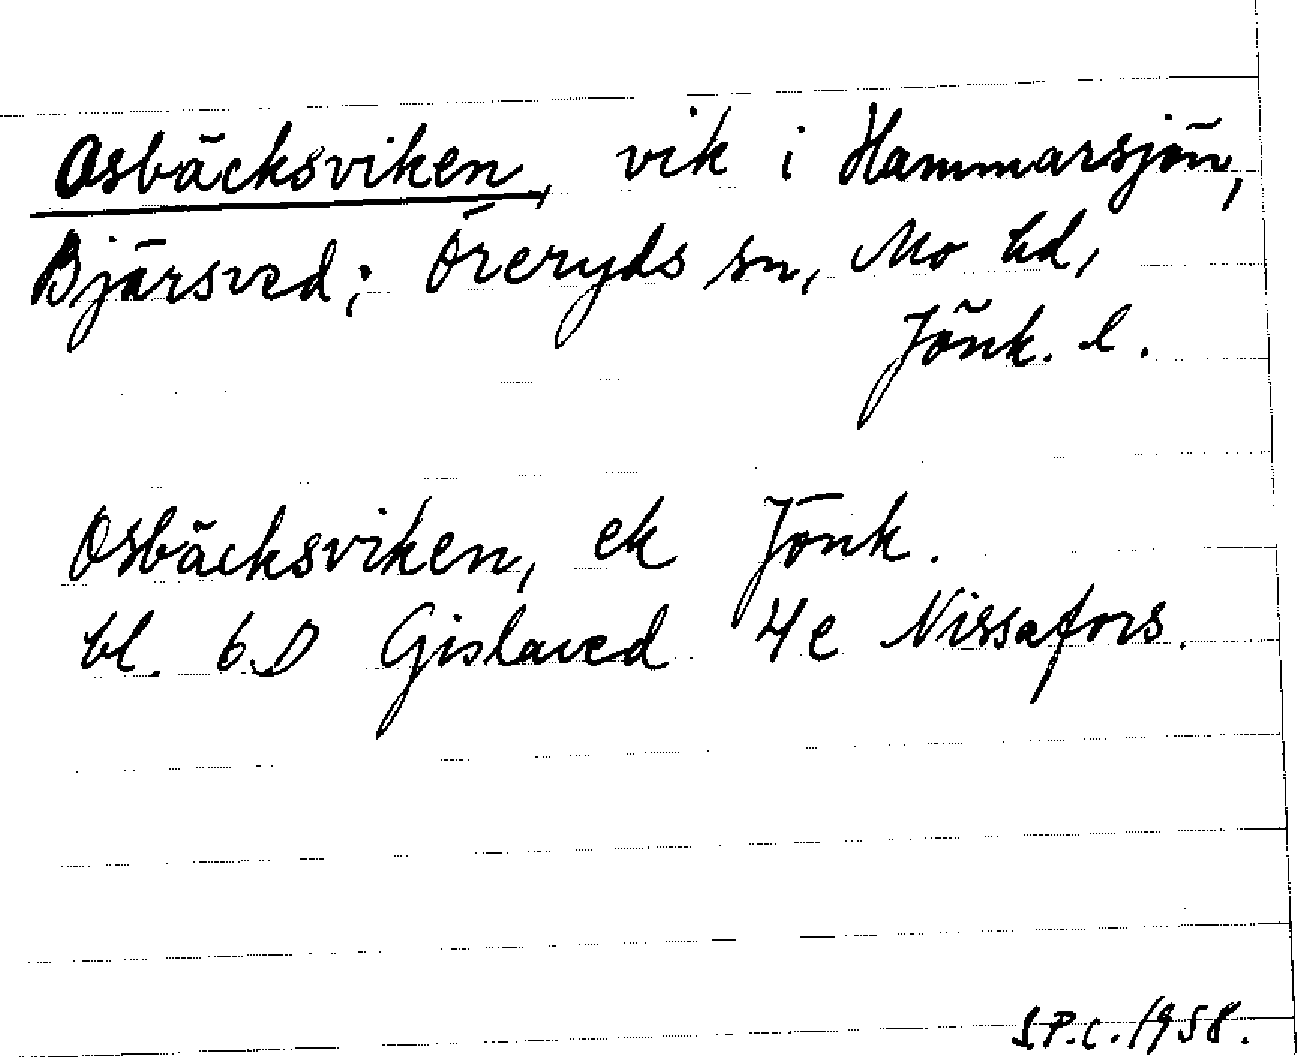 Osbäcksviken, vik i Hammarsjön,
Bjärsved; Öreryds sn, Mo hd,
Jönk. l.
Osbäcksviken, ek Jönk.
bl. 6D Gislaved 4e Nissafors.
S.P.C. 1958.